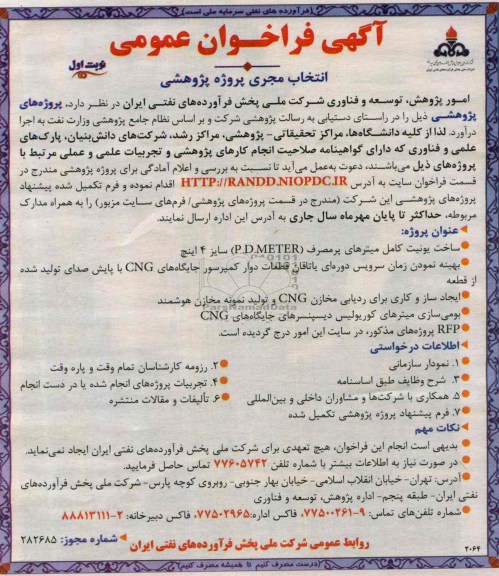 (فرآورده های نفتی سرمایه ملی است)
آگهی فراخوان عمومی
نوبت اول
انتخاب مجری پروژه پژوهشی
امور پژوهش، توسعه و فناوری شرکت ملی پخش فرآورده‌های نفتی ایران در نظر دارد، پروژه‌های
پژوهشی ذیل را در راستای دستیابی به رسالت پژوهشی شرکت و بر اساس نظام جامع پژوهشی وزارت نفت به اجرا
درآورد. لذا از کلیه دانشگاه‌ها، مراکز تحقیقاتی- پژوهشی، مراکز رشد، شرکت‌های دانش‌بنیان، پارک‌های
علمی و فناوری که دارای گواهینامه صلاحیت انجام کارهای پژوهشی و تجربیات علمی و عملی مرتبط با
پروژه‌های ذیل می‌باشند، دعوت به‌عمل می‌آید تا نسبت به بررسی و اعلام آمادگی برای پروژه پژوهشی مندرج در
قسمت فراخوان سایت به آدرس HTTP://RANDD.NIOPDC.IR اقدام نموده و فرم تکمیل شده پیشنهاد
پروژه‌های پژوهشی این شرکت (مندرج در قسمت پروژه‌های پژوهشی/ فرم‌های سایت مزبور) را به همراه مدارک
مربوطه، حداکثر تا پایان مهرماه سال جاری به آدرس این اداره ارسال نمایند.
عنوان پروژه:
ساخت یونیت کامل میترهای پرمصرف (P.D.METER) سایز ۴ اینچ
بهینه نمودن زمان سرویس دوره‌ای یاتاقان قطعات دوار کمپرسور جایگاه‌های CNG با پایش صدای تولید شده
از قطعه
ایجاد ساز و کاری برای ردیابی مخازن CNG و تولید نمونه مخازن هوشمند
بومی‌سازی میترهای کوریولیس دیسپنسرهای جایگاه‌های CNG
RFP پروژه‌های مذکور، در سایت این امور درج گردیده است.
اطلاعات درخواستی
۱. نمودار سازمانی
۲. رزومه کارشناسان تمام وقت و پاره وقت
۳. شرح وظایف طبق اساسنامه
۴. تجربیات پروژه‌های انجام شده یا در دست انجام
۵. همکاری با شرکت‌ها و مشاوران داخلی و بین‌المللی
۶. تألیفات و مقالات منتشره
۷. فرم پیشنهاد پروژه پژوهشی تکمیل شده
نکات مهم
بدیهی است انجام این فراخوان، هیچ تعهدی برای شرکت ملی پخش فرآورده‌های نفتی ایران ایجاد نمی‌نماید.
در صورت نیاز به اطلاعات بیشتر با شماره تلفن ۷۷۶۰۵۷۴۲ تماس حاصل فرمایید.
آدرس: تهران- خیابان انقلاب اسلامی- خیابان بهار جنوبی- روبروی کوچه پارس- شرکت ملی پخش فرآورده‌های
نفتی ایران- طبقه پنجم- اداره پژوهش، توسعه و فناوری
شماره تلفن‌های تماس: ۹-۷۷۵۰۰۲۶۱، فاکس اداره: ۷۷۵۰۲۹۶۵، فاکس دبیرخانه: ۲-۸۸۸۱۳۱۱۱
شماره مجوز: ۲۸۲۶۸۵
روابط عمومی شرکت ملی پخش فرآورده‌های نفتی ایران
۲۰۶۴
(درست مصرف کنیم تا همیشه مصرف کنیم)